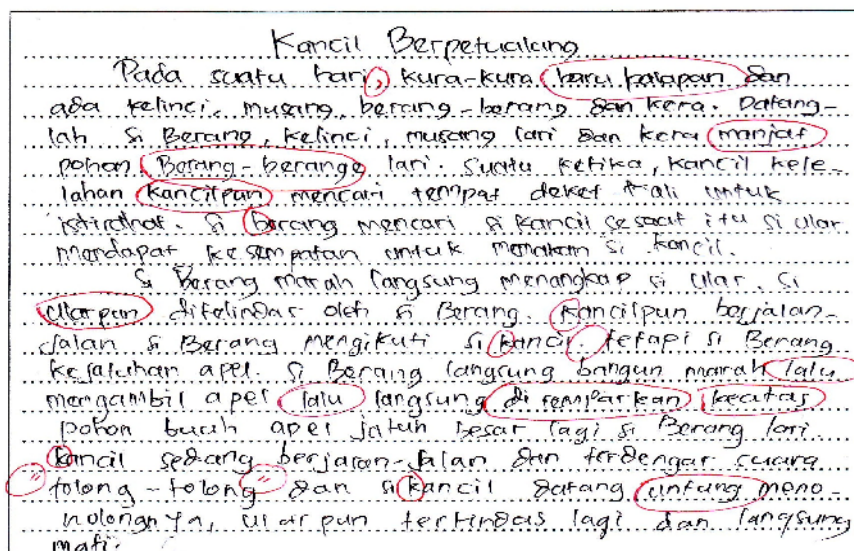 Kancil Berpetualang
Pada suatu hari, kura-kura baru balapan dan
ada kelinci, musang, berang-berang dan kera. Datang-
lah si Berang, kelinci, musang lari dan kera manjat
pohon. Berang-berange lari. Suatu ketika, kancil kele-
lahan kancilpun mencari tempat deket kali untuk
istirahat. si berang mencari si kancil sesaat itu si ular
mendapat kesempatan untuk memakan si kancil.
Si Berang marah langsung menangkap si ular. Si
ularpun ditelindas oleh si Berang. kancilpun berjalan-
jalan si Berang mengikuti si kancil, tetapi si Berang
kejatuhan apel. Si Berang langsung bangun marah lalu
mengambil apel lalu langsung di lemparkan keatas
pohon buah apel jatuh besar lagi si Berang lari.
kancil sedang berjalan-jalan dan terdengar suara
"tolong-tolong" dan si kancil datang untung meno-
nolongnya, ularpun tertindas lagi dan langsung
mati.